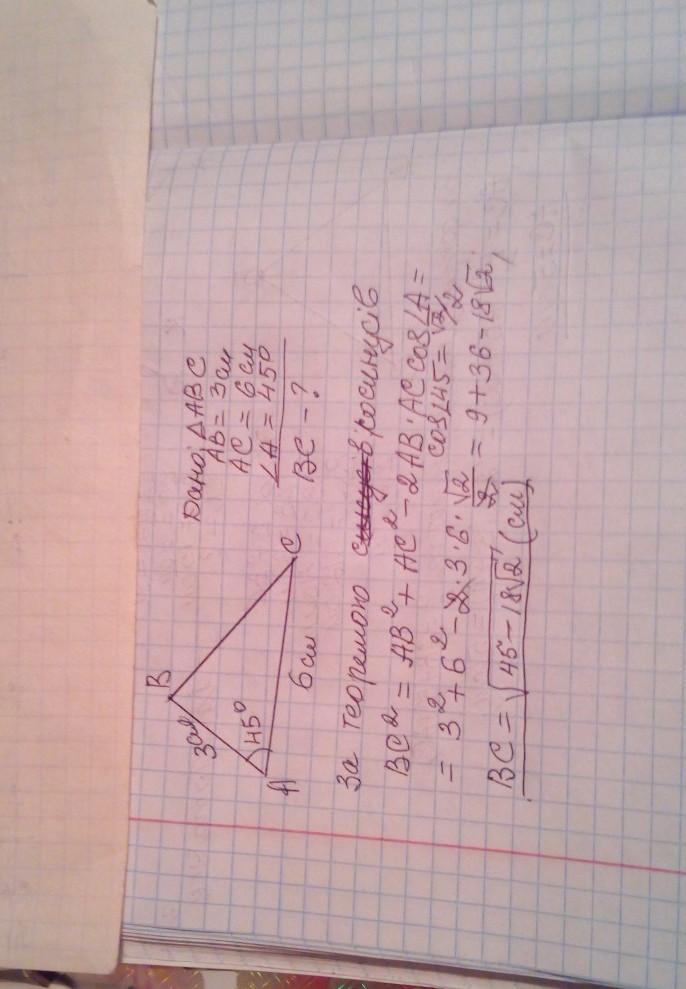 B
3см
45°
A
6см
C
Дано; ΔABC
AB = 3см
AC = 6см
∠A = 450
BC - ?
За теоремою косинусів
BC² = AB² + AC² - 2AB·AC cos∠A =
cos∠45 = √2/2
= 3² + 6² - 2·3·6·√2/2 = 9 + 36 - 18√2;
BC = √45 - 18√2 (см)